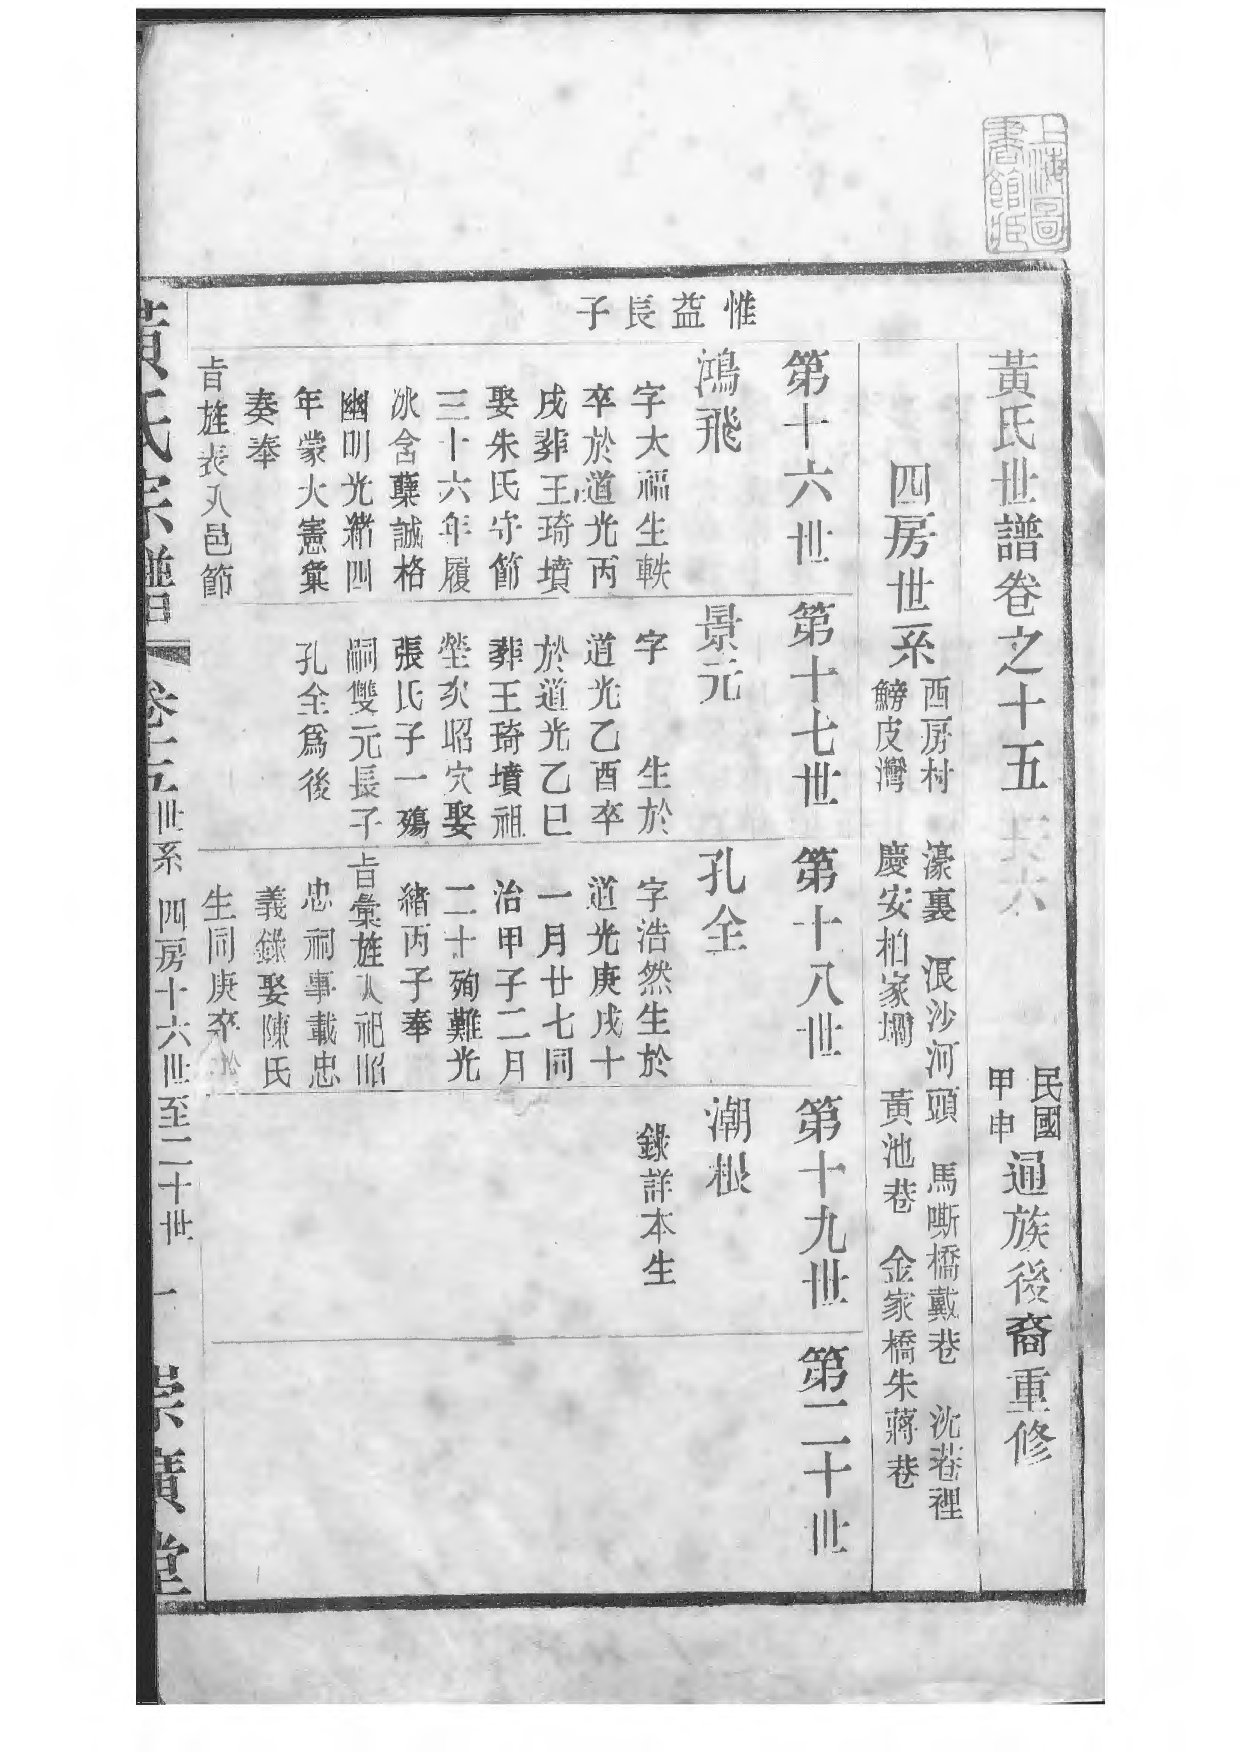 上海圖
書館藏
黃氏世譜卷之十五
民國
甲申
通族後裔重修
四房世系
西房村 濠裏 浪沙河頭 馬嘶橋戴巷 沈巷裡
鰟皮灣 慶安柏家壩 黃池巷 金家橋朱蔣巷
惟益長子
第十六世
鴻飛
字太福生軼
卒於道光丙
戌葬王琦墳
娶朱氏守節
三十六年履
冰含蘗誠格
幽明光緒四
年蒙大憲彙
奏奉
旨旌表入邑節
第十七世
景元
字 生於
道光乙酉卒
於道光乙巳
葬王琦墳祖
塋次昭穴娶
張氏子一殤
嗣雙元長子
孔全爲後
第十八世
孔全
字浩然生於
道光庚戌十
一月廿七同
治甲子二月
二十殉難光
緒丙子奉
旨彙旌入祀昭
忠祠事載忠
義錄娶陳氏
生同庚卒於
第十九世
潮根
錄詳本生
第二十世
黃氏宗譜 卷十五 世系 四房十六世至二十世 一 崇廣堂